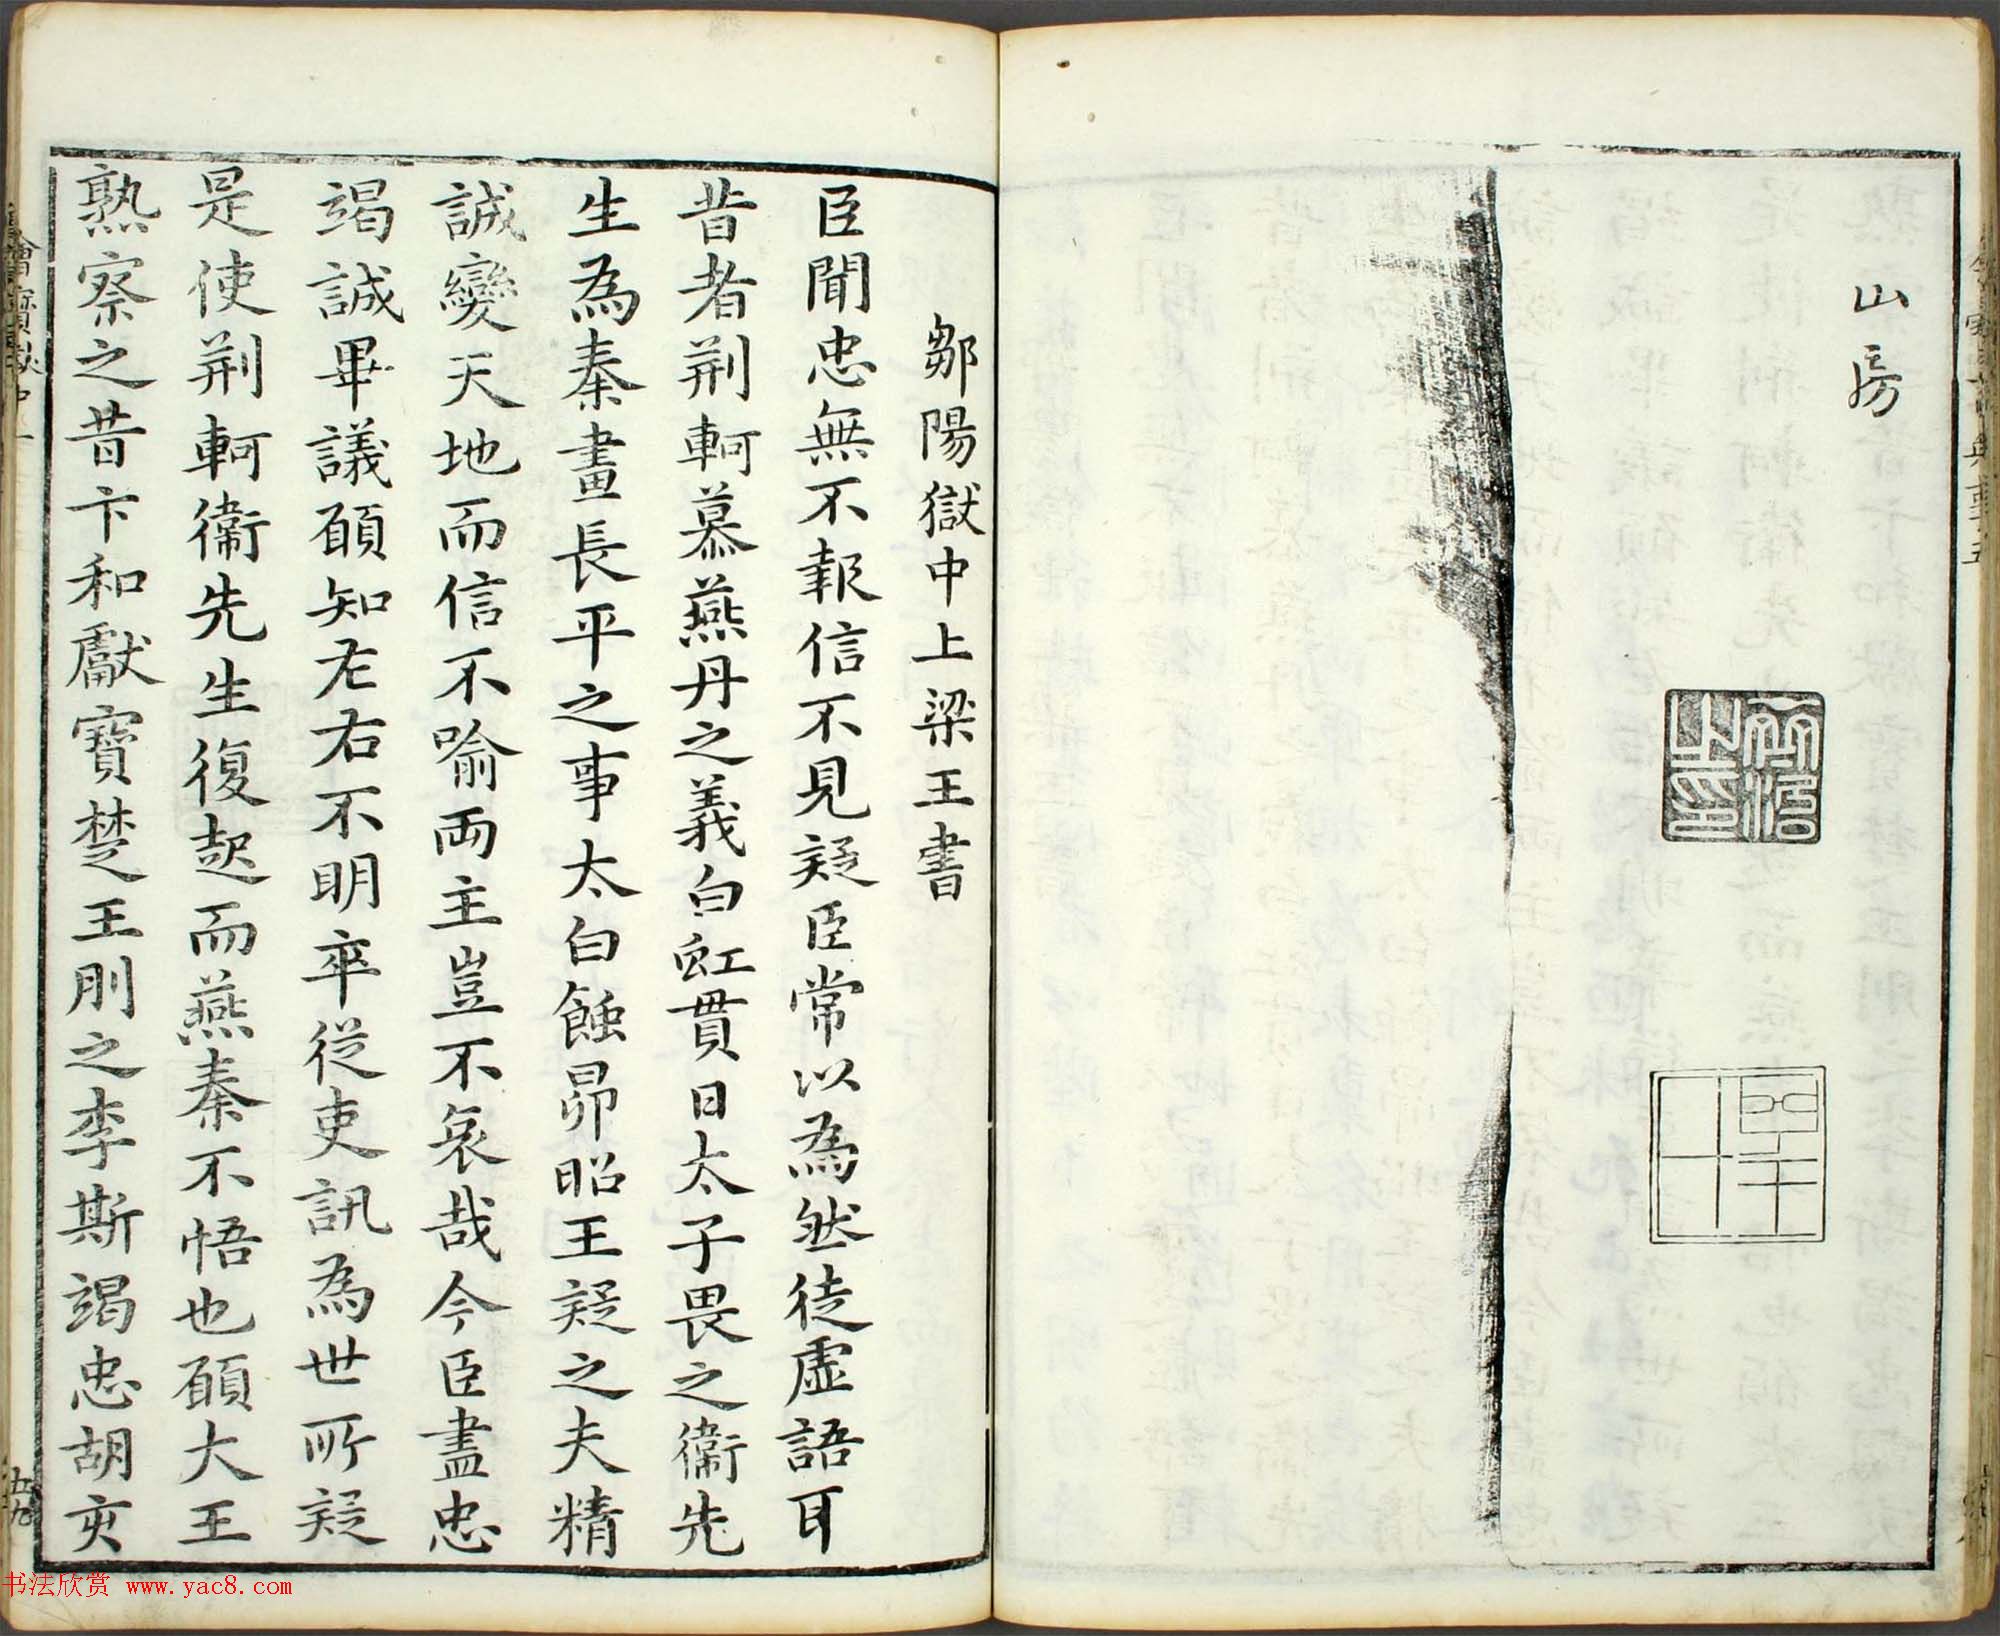 山房
鄒陽獄中上梁王書
臣聞忠無不報信不見疑臣常以為然徒虛語耳
昔者荆軻慕燕丹之義白虹貫日太子畏之衞先
生為秦畫長平之事太白蝕昴昭王疑之夫精
誠變天地而信不喻兩主豈不哀哉今臣盡忠
竭誠畢議願知左右不明卒從吏訊為世所疑
是使荆軻衞先生復起而燕秦不悟也願大王
熟察之昔卞和獻寶楚王刖之李斯竭忠胡亥
五九
书法欣赏 www.yac8.com